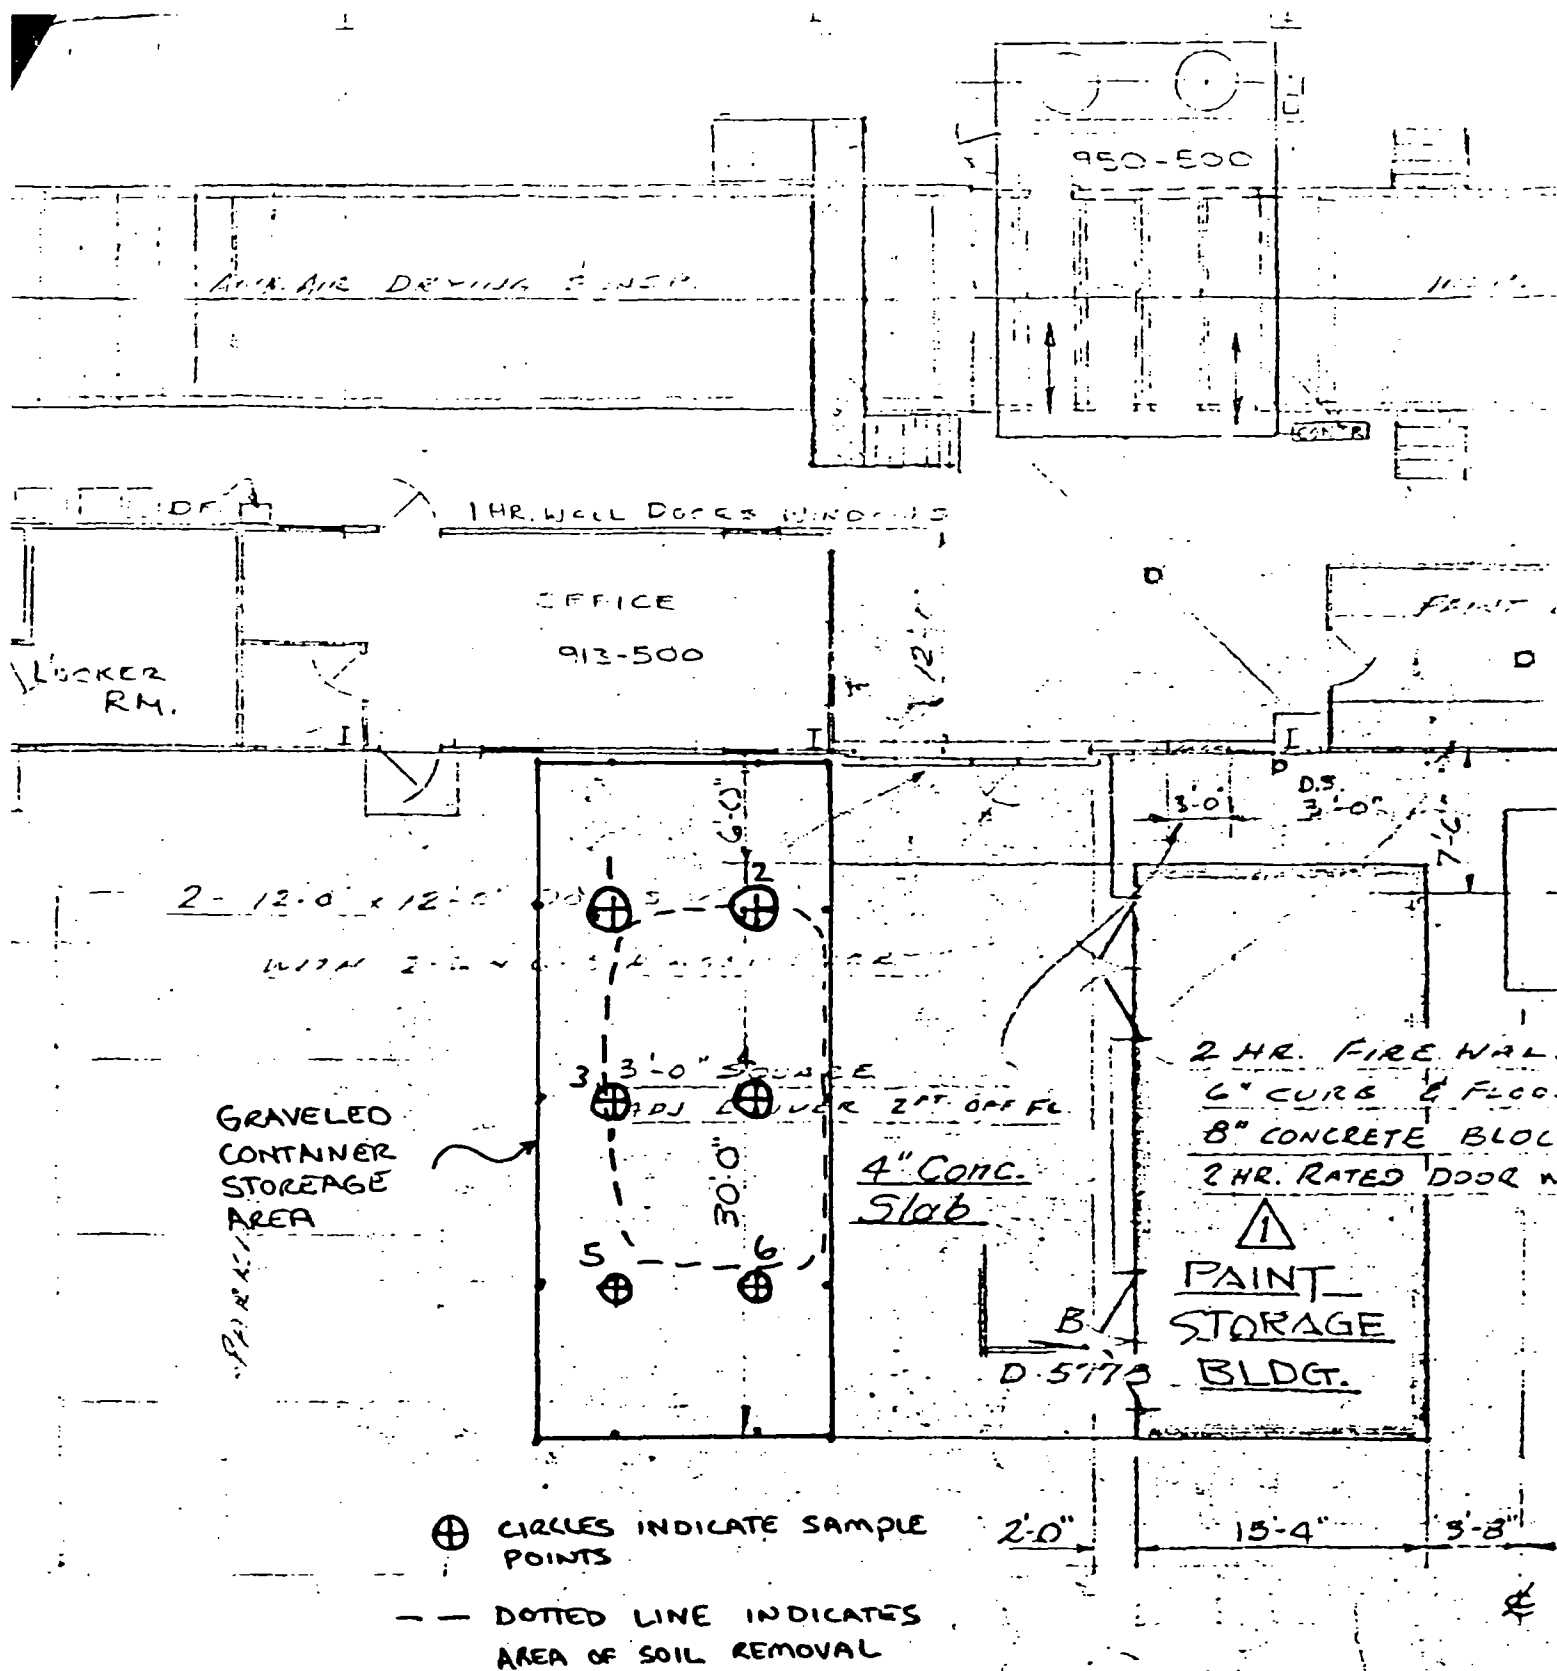 950-500
AIR DRYING & INSP.
CONT'R
DF
1 HR. WALL DOORS WINDOWS
OFFICE
913-500
LOCKER
RM.
12'-1"
PAINT
I
I
I
6'-0"
3'-0"
D.S.
3'-0"
7'-6"
1
2
2 - 12'-0" x 12'-0"
WITH
3
4
3'-0" SQUARE
ADJ LOUVER 2FT. OFF FL.
GRAVELED
CONTAINER
STOREAGE
AREA
30'-0"
4" Conc.
Slab
2 HR. FIRE WAL
6" CURB & FLOO
8" CONCRETE BLOC
2 HR. RATED DOOR W
1
PAINT
STORAGE
BLDG.
5
6
B
D-5773
CIRCLES INDICATE SAMPLE
POINTS
2'-0"
15'-4"
3'-8"
DOTTED LINE INDICATES
AREA OF SOIL REMOVAL